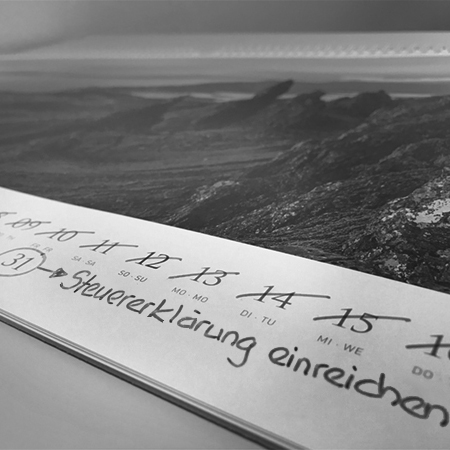 09 10 11 12 13 14 15
FR · FR SA · SA SO · SU MO · MO DI · TU MI · WE DO
31 → Steuererklärung einreichen